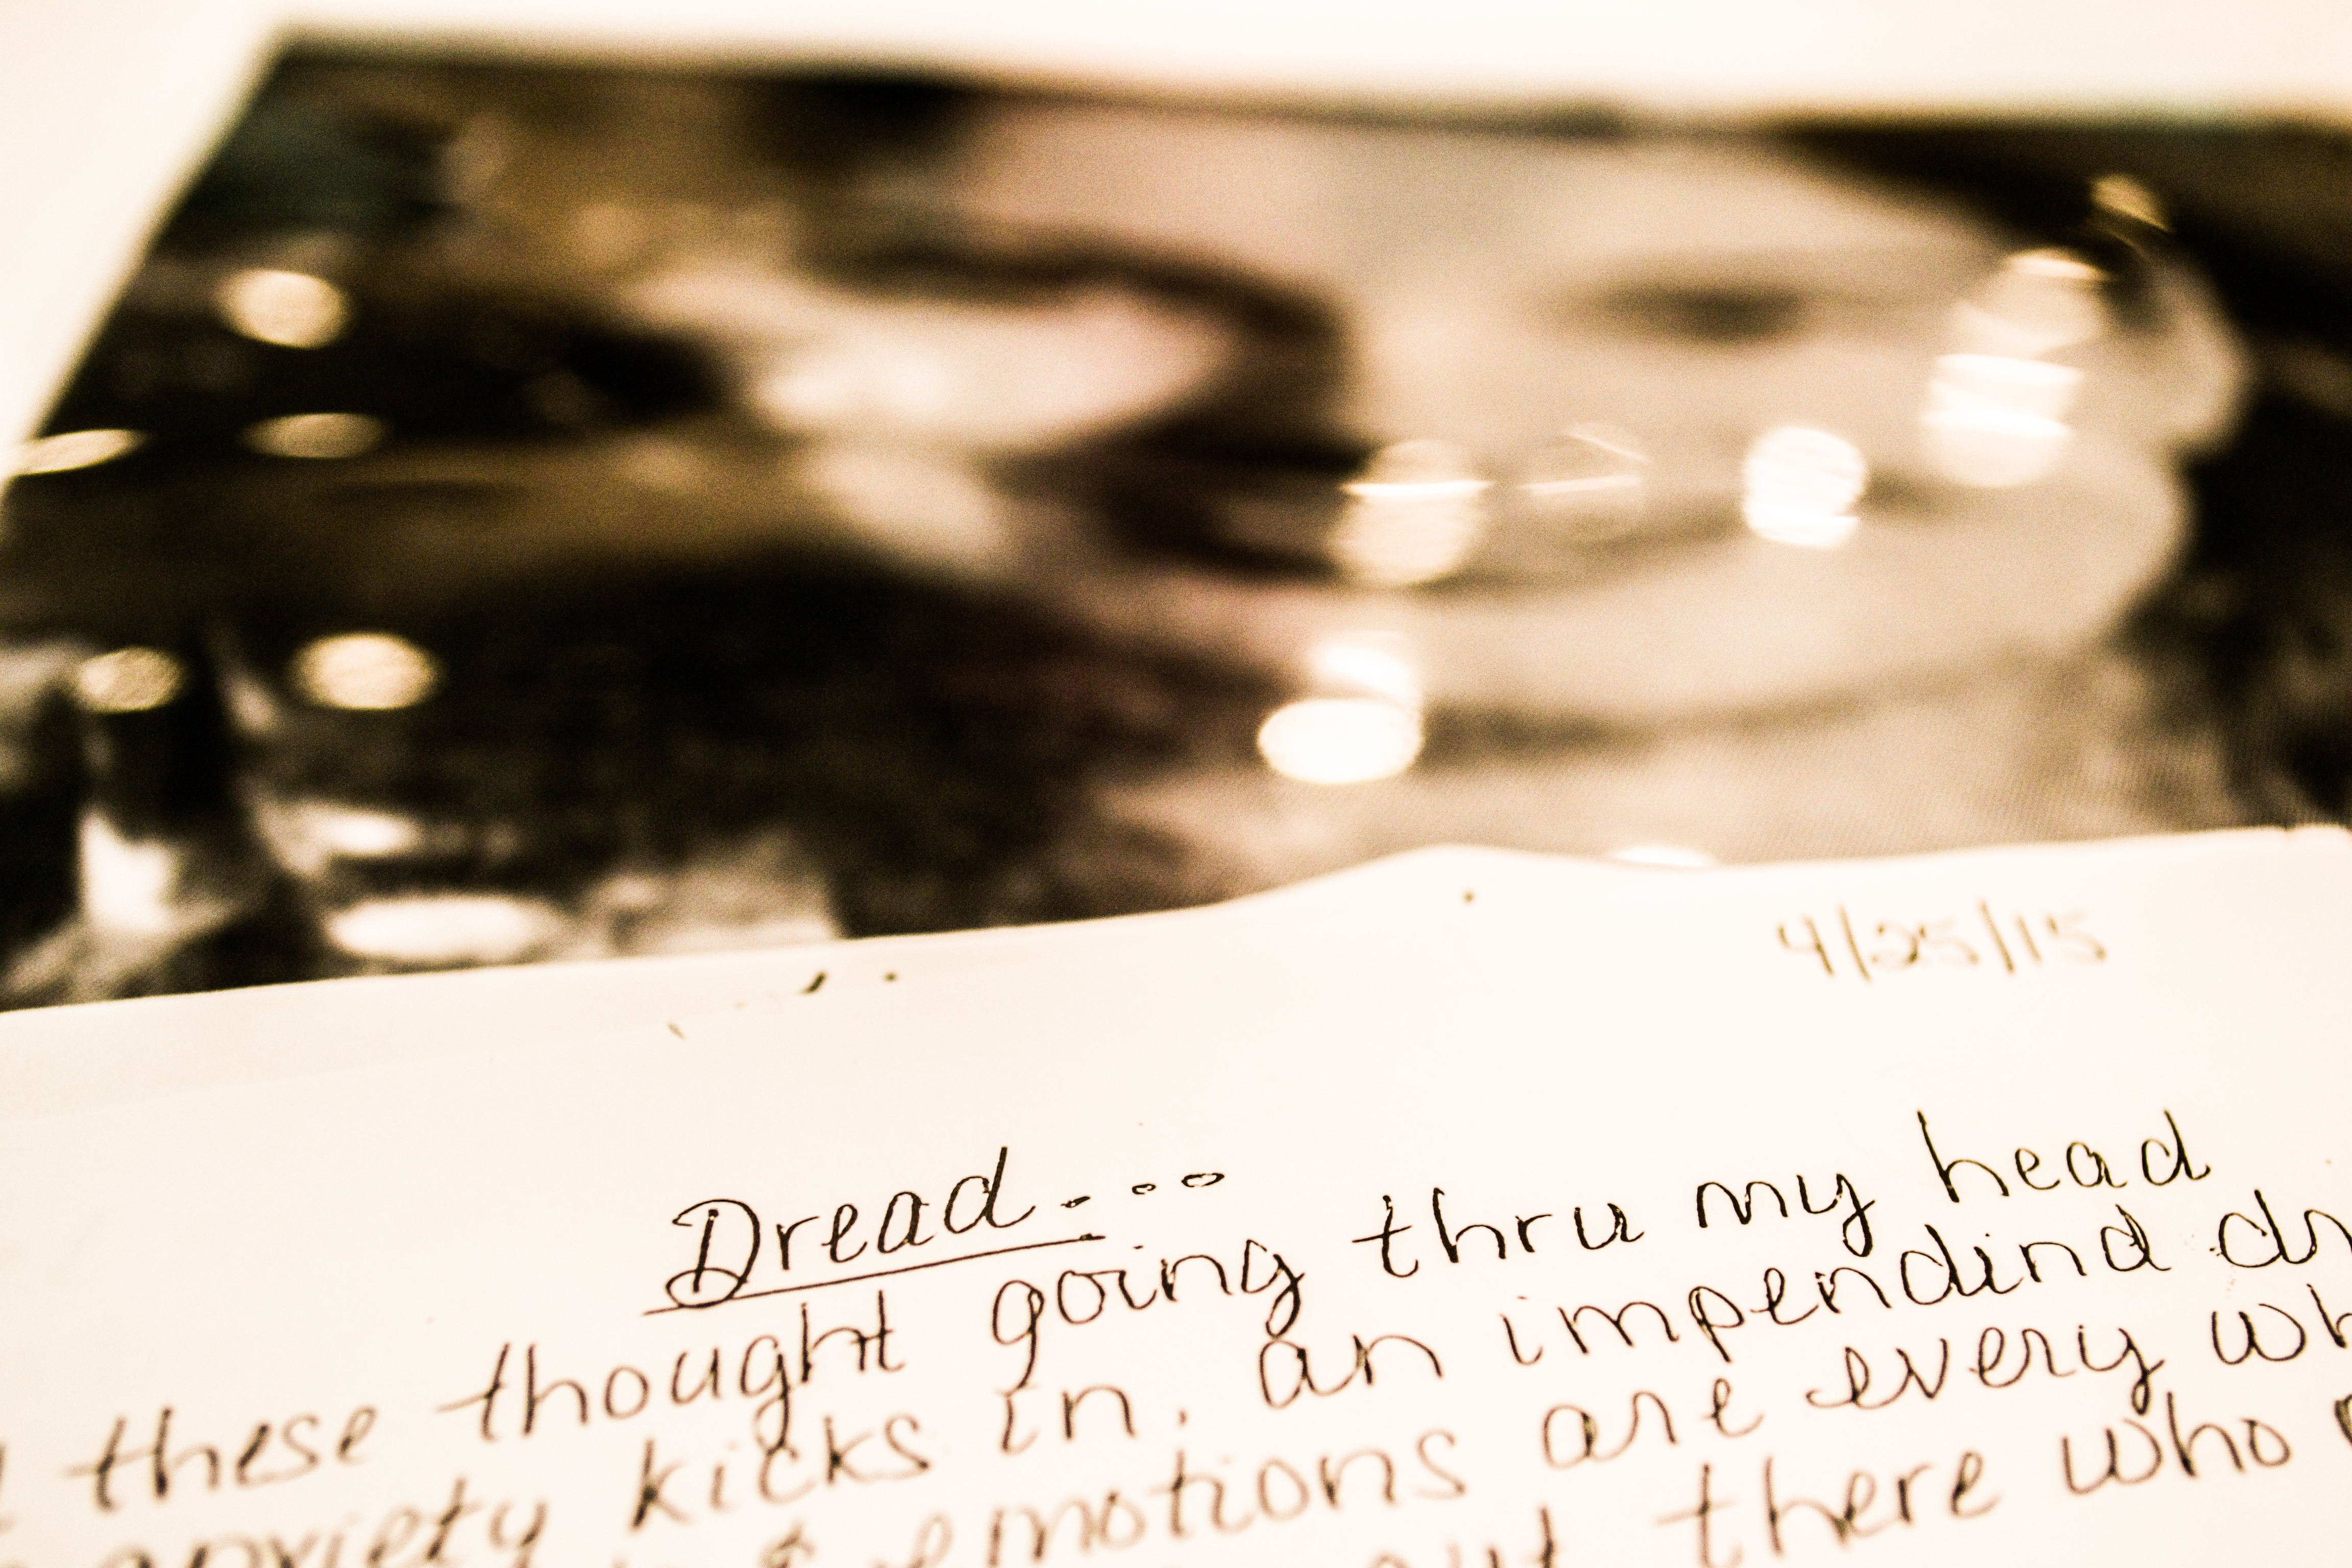 4/25/15
Dread...
these thought going thru my head
anxiety kicks in, an impendind
& emotions are every
out there who